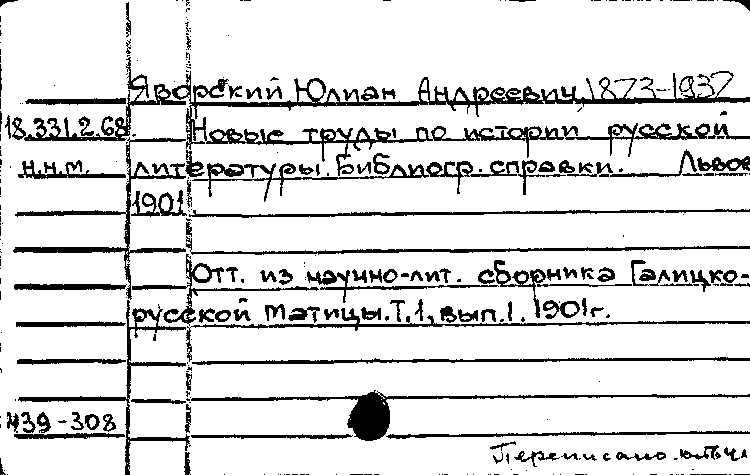 Яворский, Юлиан Андреевич, 1873-1937
18.331.2.68. Новые труды по истории русской
н.н.м. литературы. Библиогр. справки. Львов
1901.
Отт. из научно-лит. сборника Галицко-
русской Матицы. Т.1, вып.1. 1901г.
439-308
Переписано.